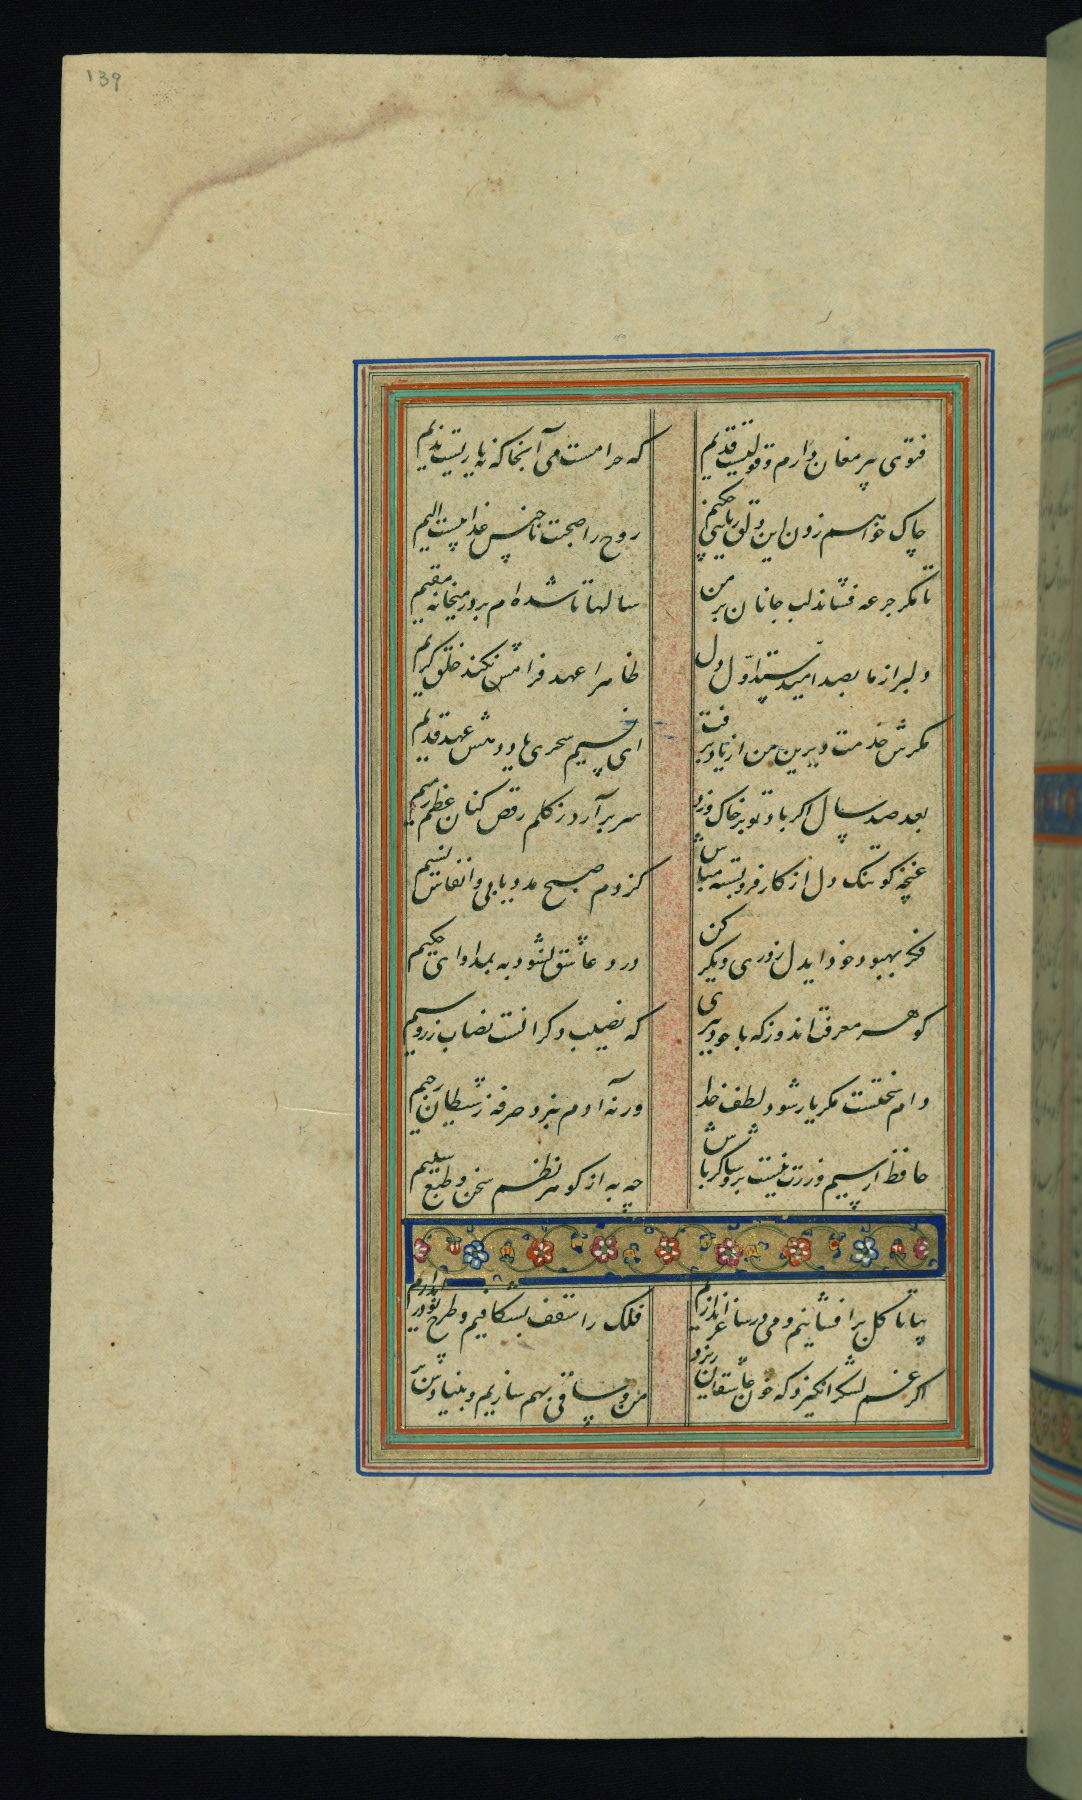 139
فتوی پیر مغان دارم و قولیست قدیم
که حرامست می آنجا که نه یاریست ندیم
چاک خواهم زدن این دلق ریایی چکنم
روح را صحبت ناجنس عذابیست الیم
تا مکر جرعه فشاند لب جانان بر من
سالها تا شده‌ام بر در میخانه مقیم
دلبر از ما بصد امید ستد اول دل
ظاهرا عهد فرامش نکند خلق کریم
مکرش خدمت دیرین من از یاد برفت
ای نسیم سحری یاد دهش عهد قدیم
بعد صد سال اکر باد تو بر خاک وزد
سر برآرد ز کلم رقص کنان عظم رمیم
غنچه کو تنک دل از کار فروبسته مباش
کز دم صبح مدد یابی و انفاس نسیم
فکر بهبود خود ایدل ز دری دیکر کن
درد عاشق نشود به بمداوای حکیم
کوهر معرفت اندوز که با خود ببری
که نصیب دکرانست نصاب زر و سیم
دام سختست مکر یار شود لطف خدا
ورنه آدم نبرد صرفه ز شیطان رجیم
حافظ ار سیم و زرت نیست برو شاکر باش
چه به از کوهر نظم سخن و طبع سلیم
بیا تا کل برافشانیم و می در ساغر اندازیم
فلک را سقف بشکافیم و طرح نو دراندازیم
اکر غم لشکر انکیزد که خون عاشقان ریزد
من و ساقی بهم سازیم و بنیادش بر